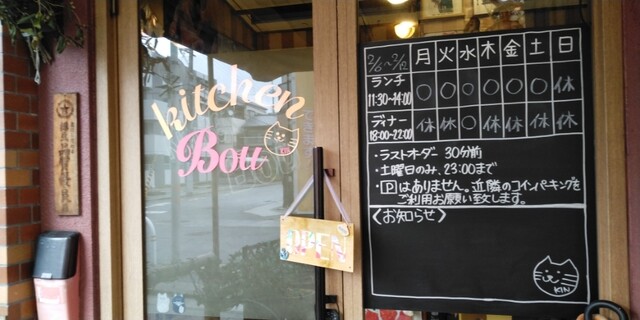 kitchen
Bou
OPEN
月 火 水 木 金 土 日
ランチ
11:30~14:00
○ ○ ○ ○ ○ ○ 休
ディナー
18:00~22:00
・ラストオーダー 30分前
・土曜日のみ、23:00まで
・Pはありません。近隣のコインパーキングを
ご利用お願い致します。
<お知らせ>
KIN